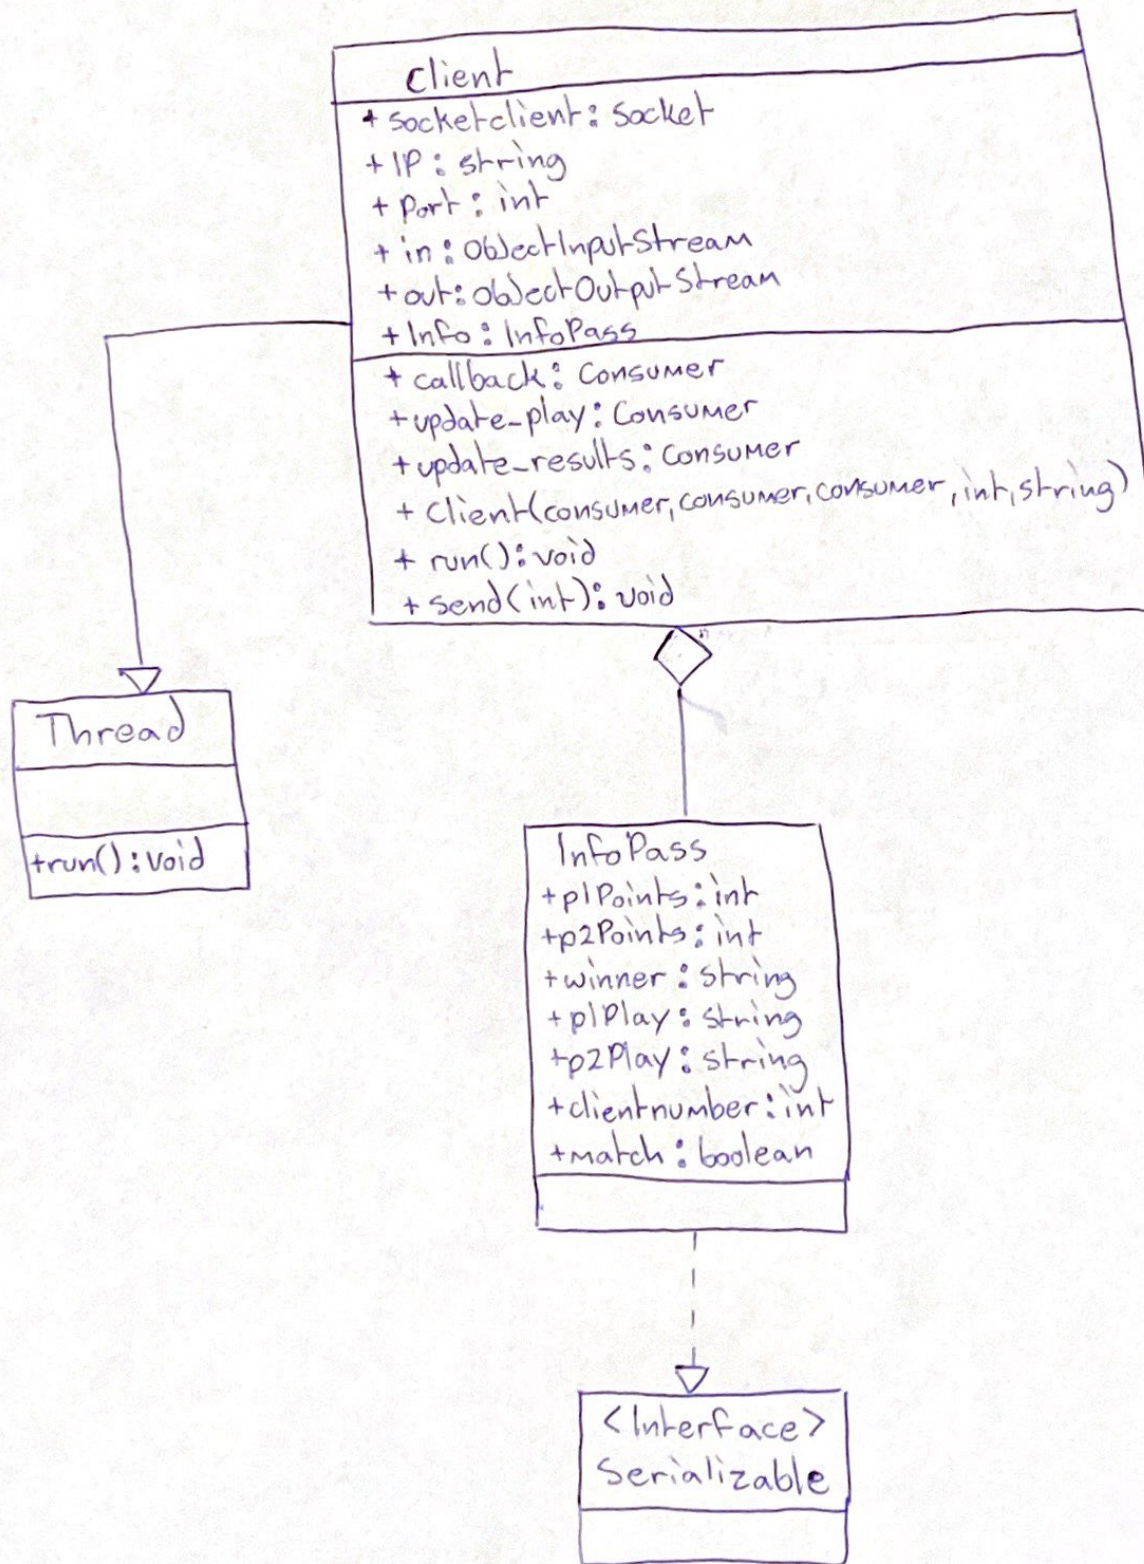 Client
+ socketclient: Socket
+ IP: string
+ Port: int
+ in: ObjectInputStream
+ out: ObjectOutputStream
+ Info: InfoPass
+ callback: Consumer
+ update_play: Consumer
+ update_results: Consumer
+ Client(consumer, consumer, consumer, int, string)
+ run(): void
+ send(int): void
Thread
+run(): void
InfoPass
+p1Points: int
+p2Points: int
+winner: string
+p1Play: string
+p2Play: string
+clientnumber: int
+match: boolean
<Interface>
Serializable